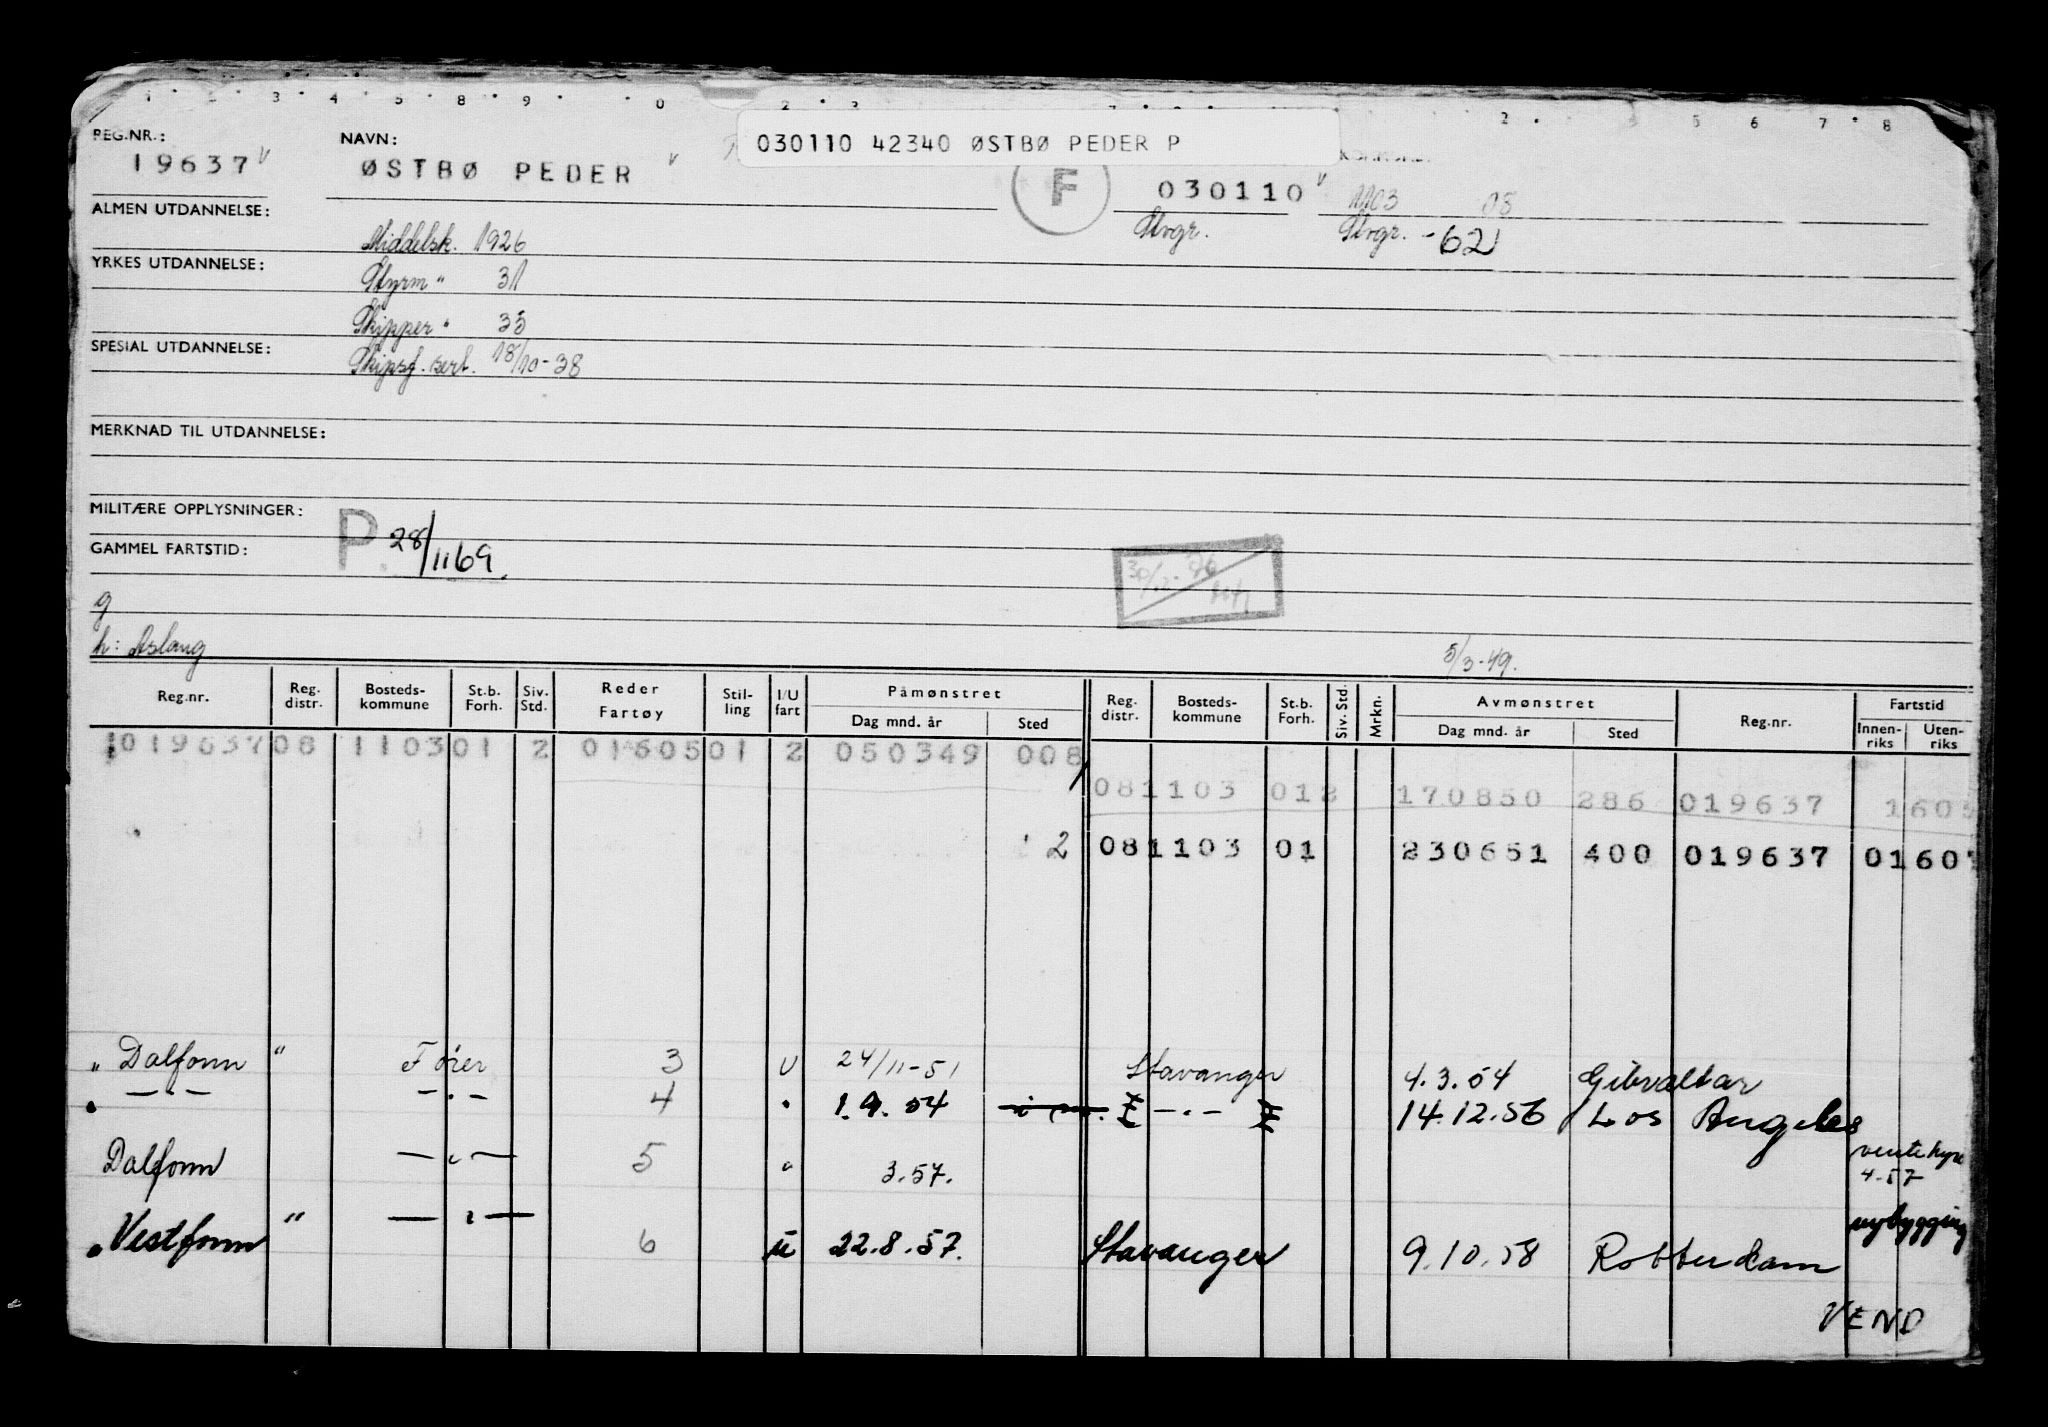 030110 42340 ØSTBØ PEDER P
REG.NR.: NAVN:
19637 v ØSTBØ PEDER v F 030110 v 1103 05
ALMEN UTDANNELSE: Middelsk. 1926 Utvgr. Utvgr. -62
YRKES UTDANNELSE: Styrm " 31
Skipper " 35
SPESIAL UTDANNELSE: Skipsf. sert. 18/10-38
MERKNAD TIL UTDANNELSE:
MILITÆRE OPPLYSNINGER:
GAMMEL FARTSTID: P. 28/11 69.
g
h: Aslaug 5/3-49.
Reg.nr. Reg. distr. Bosteds-kommune St.b. Forh. Siv. Std. Reder Fartøy Stil-ling I/U fart Påmønstret Dag mnd. år Sted Reg. distr. Bosteds-kommune St.b. Forh. Siv. Std. Mrkn. Avmønstret Dag mnd. år Sted Reg.nr. Fartstid Innen-riks Uten-riks
019637 08 1103 01 2 01605 01 2 050349 008
08 1103 01 2 170850 286 019637 1605
2 08 1103 01 230651 400 019637 01607
" Dalfonn " Fører 3 U 24/11-51 Stavanger 4.3.54 Gibraltar
— " — — " — 4 " 1.9.54 — " — 14.12.56 Los Angeles
Dalfonn — " — 5 " 3.57. ventehyre 4-57
" Vestfonn " — " — 6 u 22.8.57. Stavanger 9.10.58 Rotterdam nybygging
VEND